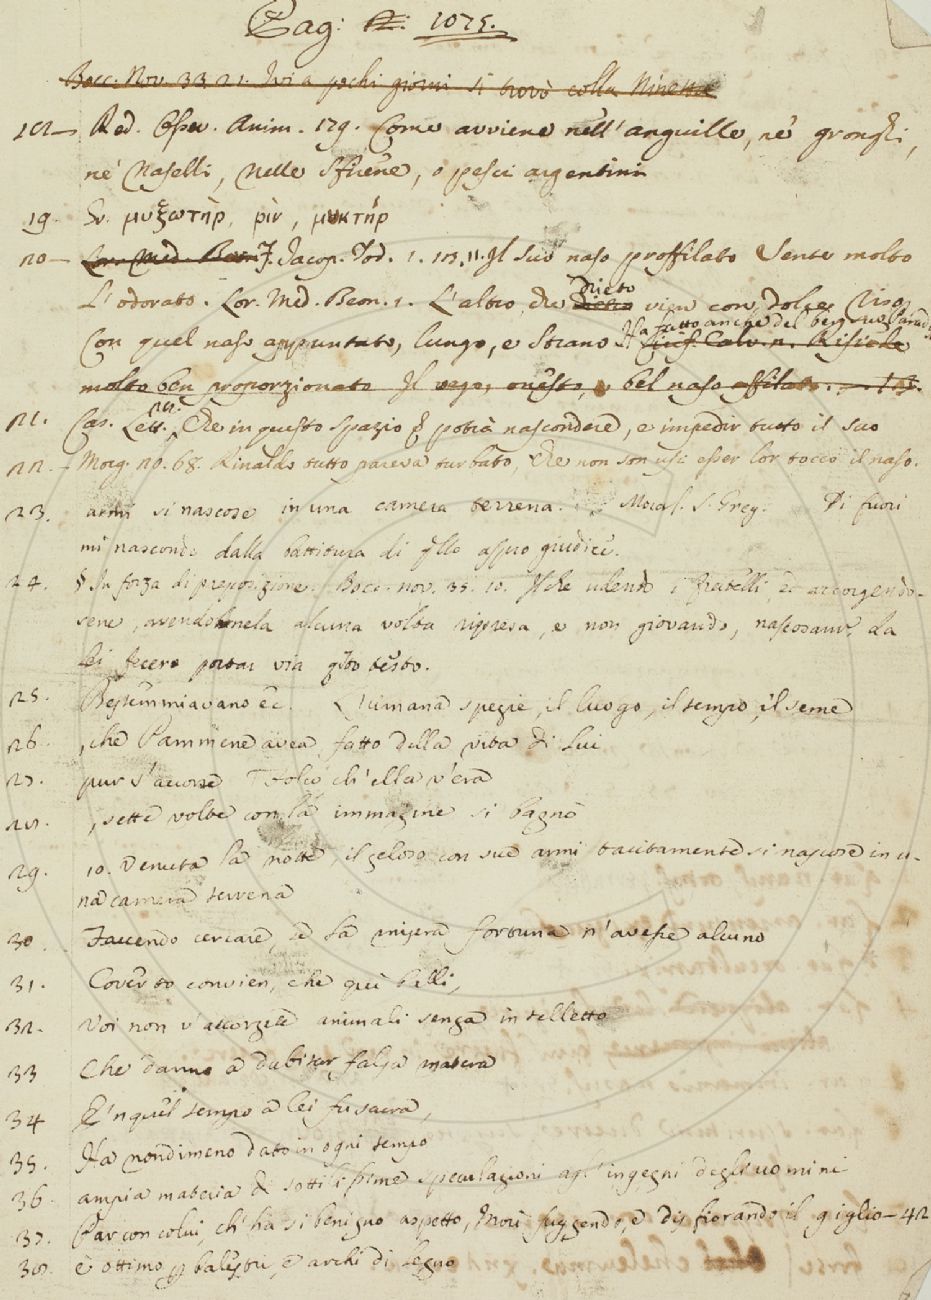 Pag: 1075.
Bocc. Nov. 33. 21. Ivi a pochi giorni si trovò colla Ninetta
Red. Osser. Anim. 179. Come avviene nell'anguille, ne' gronghi,
ne' Naselli, nelle Sfirene, o pesci argentini
19. Gr. μυξωτὴρ, ρὶν, μυκτήρ
20 Lor. Med. Beon. F. Jacop. Tod. 1. Il suo naso proffilato Sente molto
L'odorato. Lor. Med. Beon. 1. L'altro, che drieto vien con dolce riso
Con quel naso appuntato, lungo, e Strano Ha fatto anche del ber
molto ben proporzionato Il vago, onesto, e bel naso affilato.
21. Cas. Lett. Che in questo spazio potrà nascondere, e impedir tutto il suo
22. Morg. 20. 68. Rinaldo tutto pareva turbato, Che non son usi esser lor tocco il naso.
23. armi si nascose in una camera terrena. Moral. S. Greg. Di fuori
mi nascondo dalla battitura di aspro giudice.
24. § In forza di preposizione. Bocc. nov. 35. 10. Il che udendo i fratelli, e accorgendo-
sene, avendonela alcuna volta ripresa, e non giovando, nascosam. da
lei fecero portar via testo.
25. Bestemmiavano ec. L'umana spezie, il luogo, il tempo, il seme
26. , che Pammene avea fatto della vita di lui
27. pur s'accorse Tolco ch'ella v'era
28. , sette volte con la immagine si bagnò
29. 10. Venuta la notte, il geloso con sue armi tacitamente si nascose in u-
na camera terrena
30. Faccendo cercare, se la misera fortuna n'avesse alcuno
31. Coverto convien, che quì balli,
32. Voi non v'accorgete animali senza intelletto
33 Che danno a dubitar falsa matera
34 E'n quel tempo a lei fu sacra,
35. Ha nondimeno dato in ogni tempo
36. ampia materia di sottilissime speculazioni agl'ingegni degli uomini
37. Par con colui, ch'ha sì benigno aspetto, Morì fuggendo, e disfiorando il giglio - 42
38. è ottimo balestri, e archi di legno